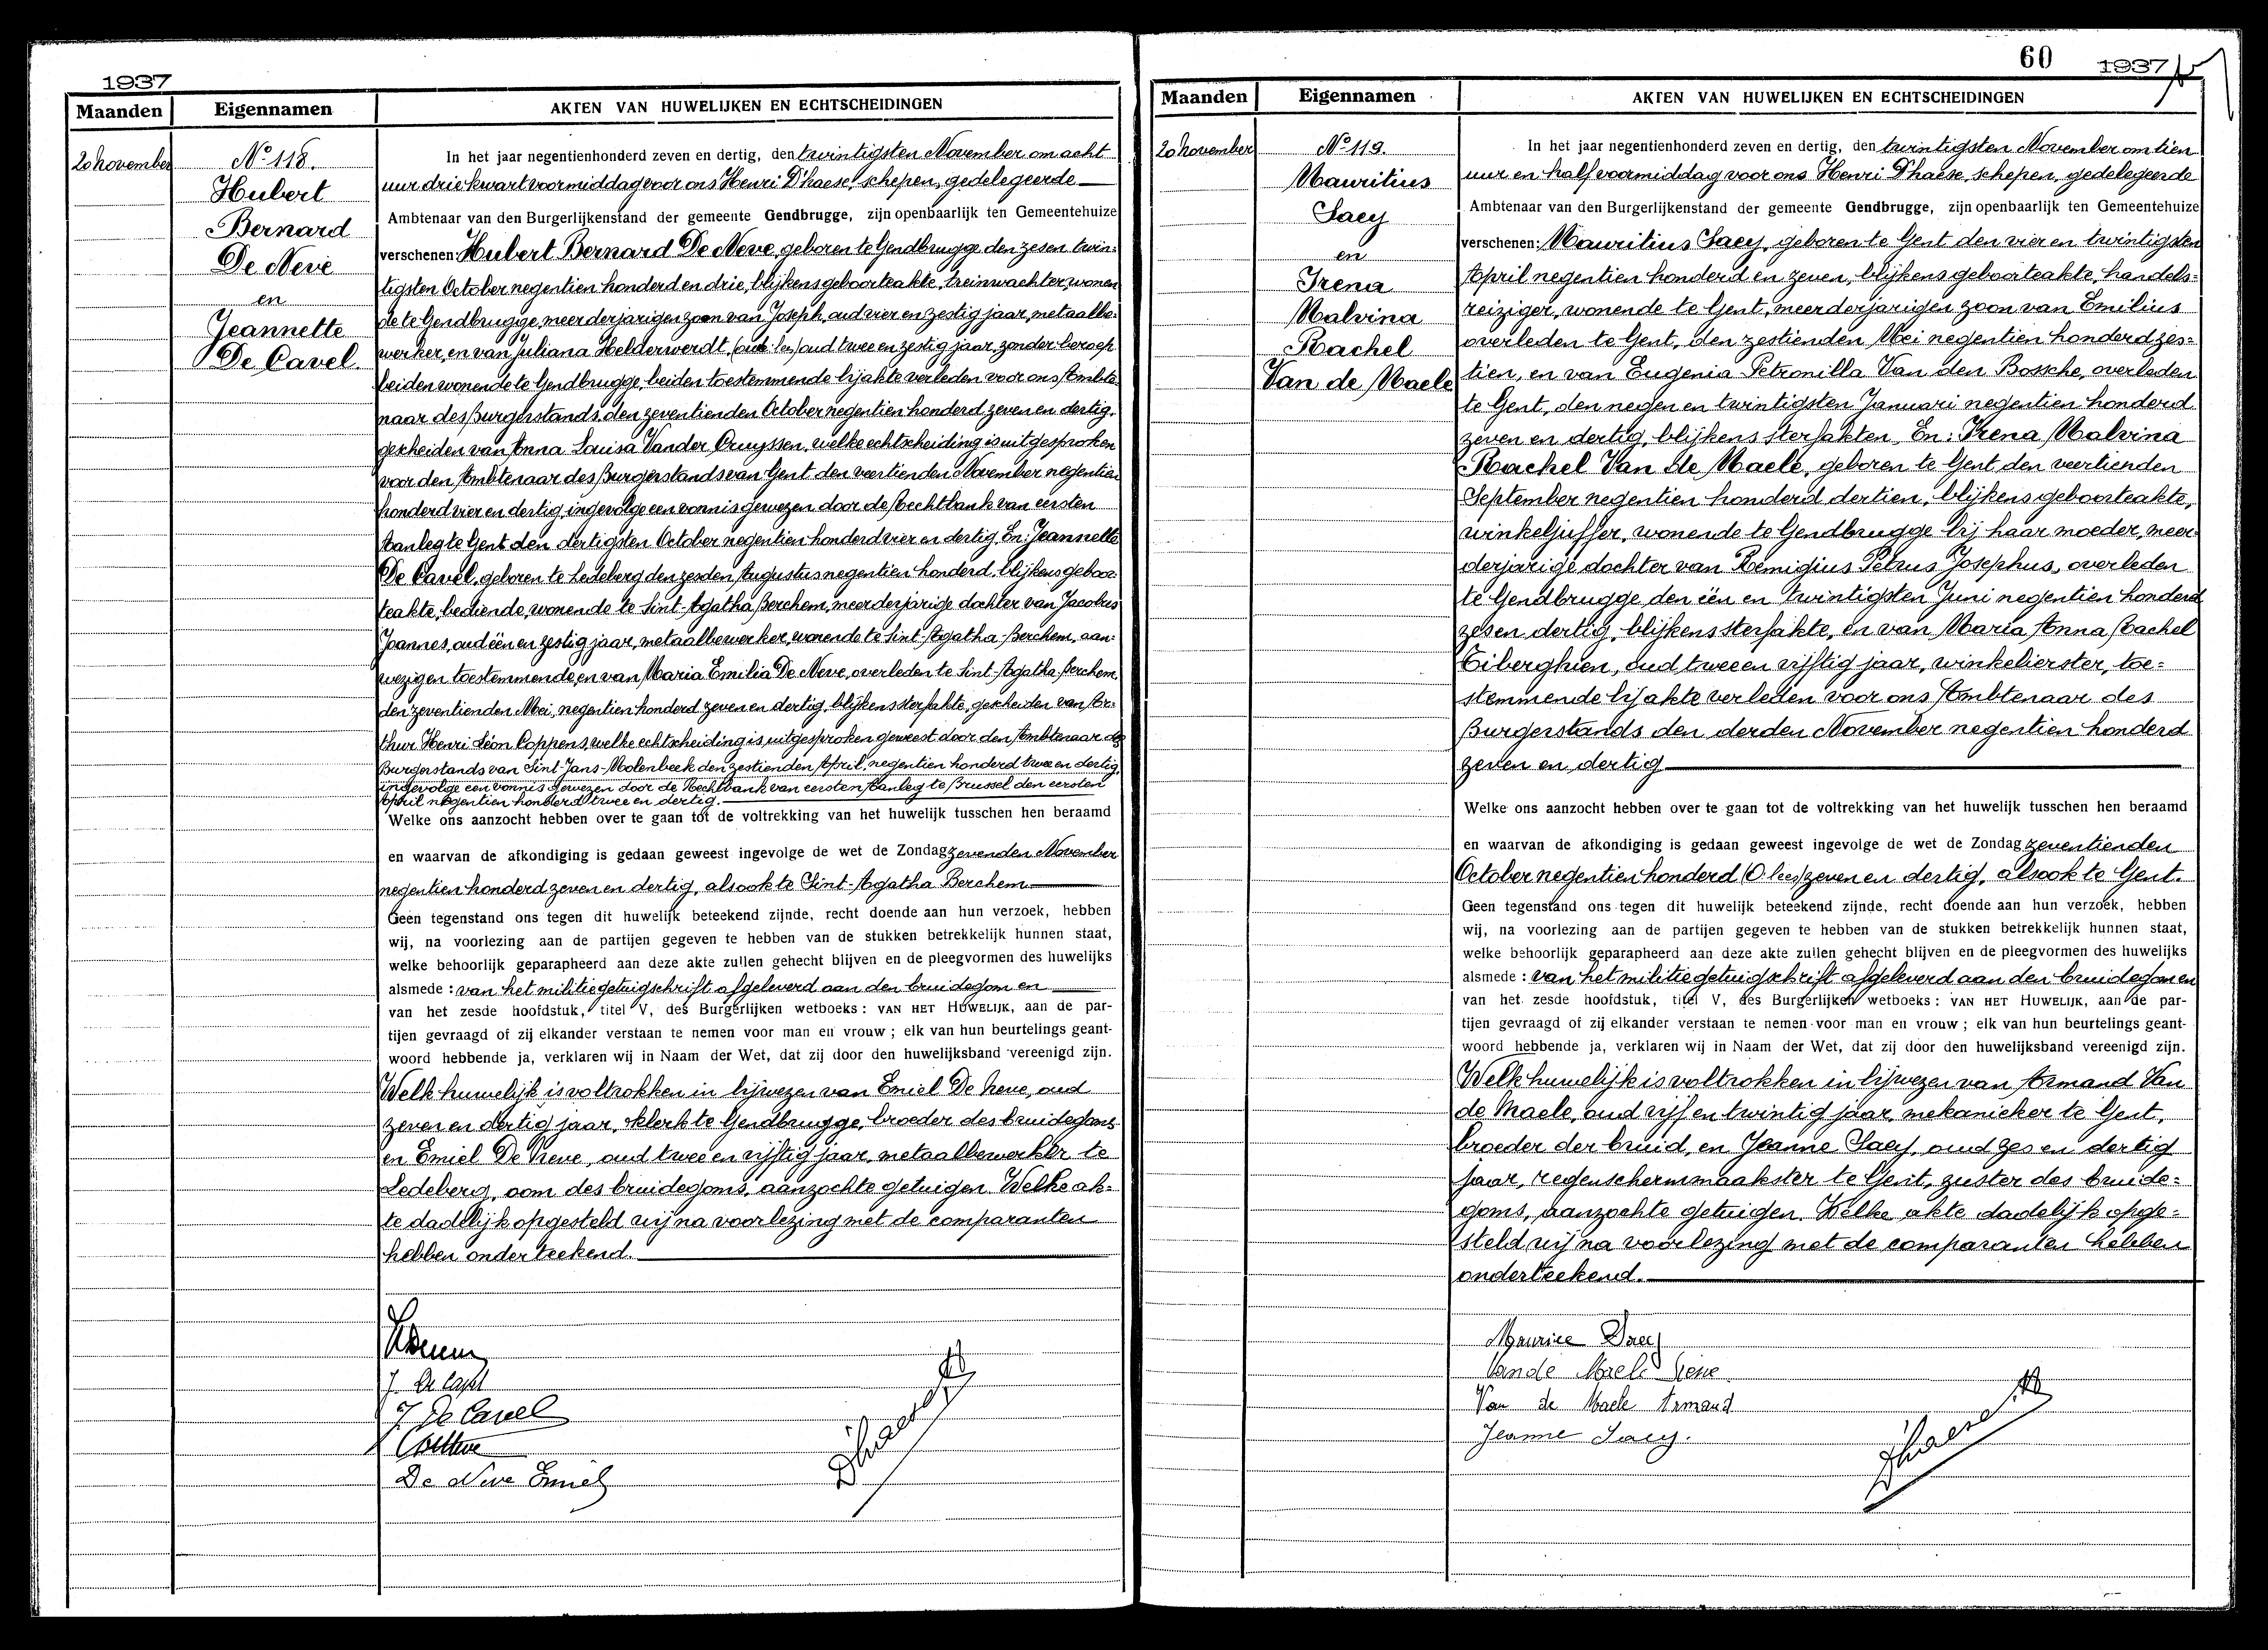 1937
Maanden Eigennamen AKTEN VAN HUWELIJKEN EN ECHTSCHEIDINGEN
20 november
No 118.
Hubert
Bernard
De Neve
en
Jeannette
De Cavel
In het jaar negentienhonderd zeven en dertig, den twintigsten November om acht
uur drie kwart voormiddag voor ons Henri D'haese, schepen, gedelegeerde
Ambtenaar van den Burgerlijkenstand der gemeente Gendbrugge, zijn openbaarlijk ten Gemeentehuize
verschenen: Hubert Bernard De Neve, geboren te Gendbrugge den zesen twin:
tigsten October negentien honderd en drie, blijkens geboorteakte, treinwachter, wonen
de te Gendbrugge, meerderjarigen zoon van Joseph, oud vier en zestig jaar, metaalbe:
werker, en van Juliana Helderwerdt, (oud: les) oud twee en zestig jaar, zonder beroep
beiden wonende te Gendbrugge, beiden toestemmende bij akte verleden voor ons Ambte
naar des Burgerstands, den zeventienden October negentien honderd zeven en dertig,
gescheiden van Anna Louisa Vander Cruyssen, welke echtscheiding is uitgesproken
voor den Ambtenaar des Burgerstands van Gent den veertienden November negentien
honderd vier en dertig, ingevolge een vonnis gewezen door de Rechtbank van eersten
Aanleg te Gent den dertigsten October negentien honderd vier en dertig, En: Jeannette
De Cavel, geboren te Ledeberg den zesden Augustus negentien honderd, blijkens geboor:
teakte, bediende, wonende te Sint-Agatha Berchem, meerderjarige dochter van Jacobus
Joannes, oud één en zestig jaar, metaalbewerker, wonende te Sint-Agatha-Berchem, aan:
wezigen toestemmende, en van Maria Emilia De Neve, overleden te Sint-Agatha-Berchem,
den zeventienden Mei, negentien honderd zeven en dertig, blijkens sterfakte, gescheiden van Ar:
thur Henri Léon Coppens, welke echtscheiding is uitgesproken geweest door den Ambtenaar des
Burgerstands van Sint-Jans-Molenbeek den zestienden April, negentien honderd twee en dertig,
ingevolge een vonnis gewezen door de Rechtbank van eersten Aanleg te Brussel den eersten
April negentien honderd twee en dertig.
Welke ons aanzocht hebben over te gaan tot de voltrekking van het huwelijk tusschen hen beraamd
en waarvan de afkondiging is gedaan geweest ingevolge de wet de Zondag zevenden November
negentien honderd zeven en dertig, alsook te Sint-Agatha Berchem
Geen tegenstand ons tegen dit huwelijk beteekend zijnde, recht doende aan hun verzoek, hebben
wij, na voorlezing aan de partijen gegeven te hebben van de stukken betrekkelijk hunnen staat,
welke behoorlijk geparapheerd aan deze akte zullen gehecht blijven en de pleegvormen des huwelijks
alsmede : van het militiegetuigschrift afgeleverd aan den bruidegom en
van het zesde hoofdstuk, titel V, des Burgerlijken wetboeks : VAN HET HUWELIJK, aan de par-
tijen gevraagd of zij elkander verstaan te nemen voor man en vrouw ; elk van hun beurtelings geant-
woord hebbende ja, verklaren wij in Naam der Wet, dat zij door den huwelijksband vereenigd zijn.
Welk huwelijk is voltrokken in bijwezen van Emiel De Neve, oud
zeven en dertig jaar, klerk te Gendbrugge, broeder des bruidegoms
en Emiel De Neve, oud twee en vijftig jaar, metaalbewerker te
Ledeberg, oom des bruidegoms, aanzochte getuigen. Welke ak:
te dadelijk opgesteld wij na voorlezing met de comparanten
hebben onderteekend.
J. De Cavel
J. De Cavel
De Neve Emiel
D'haese
60
1937
Maanden Eigennamen AKTEN VAN HUWELIJKEN EN ECHTSCHEIDINGEN
20 november
No 119.
Mauritius
Saey
en
Irena
Malvina
Rachel
Van de Maele
In het jaar negentienhonderd zeven en dertig, den twintigsten November om tien
uur en half voormiddag voor ons Henri D'haese, schepen, gedelegeerde
Ambtenaar van den Burgerlijkenstand der gemeente Gendbrugge, zijn openbaarlijk ten Gemeentehuize
verschenen: Mauritius Saey, geboren te Gent den vier en twintigsten
April negentien honderd en zeven, blijkens geboorteakte, handels:
reiziger, wonende te Gent, meerderjarigen zoon van Emilius
overleden te Gent, den zestienden Mei negentien honderd zes:
tien, en van Eugenia Petronilla Van den Bossche, overleden
te Gent, den negen en twintigsten Januari negentien honderd
zeven en dertig, blijkens sterfakten, En: Irena Malvina
Rachel Van de Maele, geboren te Gent den veertienden
September negentien honderd dertien, blijkens geboorteakte,
winkeljuffer, wonende te Gendbrugge bij haar moeder, meer:
derjarige dochter van Remigius Petrus Josephus, overleden
te Gendbrugge, den één en twintigsten Juni negentien honderd
zesen dertig, blijkens sterfakte, en van Maria Anna Rachel
Tiberghien, oud twee en vijftig jaar, winkelierster, toe:
stemmende bij akte verleden voor ons Ambtenaar des
Burgerstands den derden November negentien honderd
zeven en dertig
Welke ons aanzocht hebben over te gaan tot de voltrekking van het huwelijk tusschen hen beraamd
en waarvan de afkondiging is gedaan geweest ingevolge de wet de Zondag zeventienden
October negentien honderd (O. lees) zeven en dertig, alsook te Gent.
Geen tegenstand ons tegen dit huwelijk beteekend zijnde, recht doende aan hun verzoek, hebben
wij, na voorlezing aan de partijen gegeven te hebben van de stukken betrekkelijk hunnen staat,
welke behoorlijk geparapheerd aan deze akte zullen gehecht blijven en de pleegvormen des huwelijks
alsmede : van het militiegetuigschrift afgeleverd aan den bruidegom en
van het zesde hoofdstuk, titel V, des Burgerlijken wetboeks : VAN HET HUWELIJK, aan de par-
tijen gevraagd of zij elkander verstaan te nemen voor man en vrouw ; elk van hun beurtelings geant-
woord hebbende ja, verklaren wij in Naam der Wet, dat zij door den huwelijksband vereenigd zijn.
Welk huwelijk is voltrokken in bijwezen van Armand Van
de Maele, oud vijf en twintig jaar, mekanieker te Gent,
broeder der bruid, en Jeanne Saey, oud zes en dertig
jaar, regenschermmaakster te Gent, zuster des bruide:
goms, aanzochte getuigen. Welke akte dadelijk opge:
steld wij na voorlezing met de comparanten hebben
onderteekend.
Maurice Saey
Van de Maele Irène
Van de Maele Armand
Jeanne Saey.
D'haese